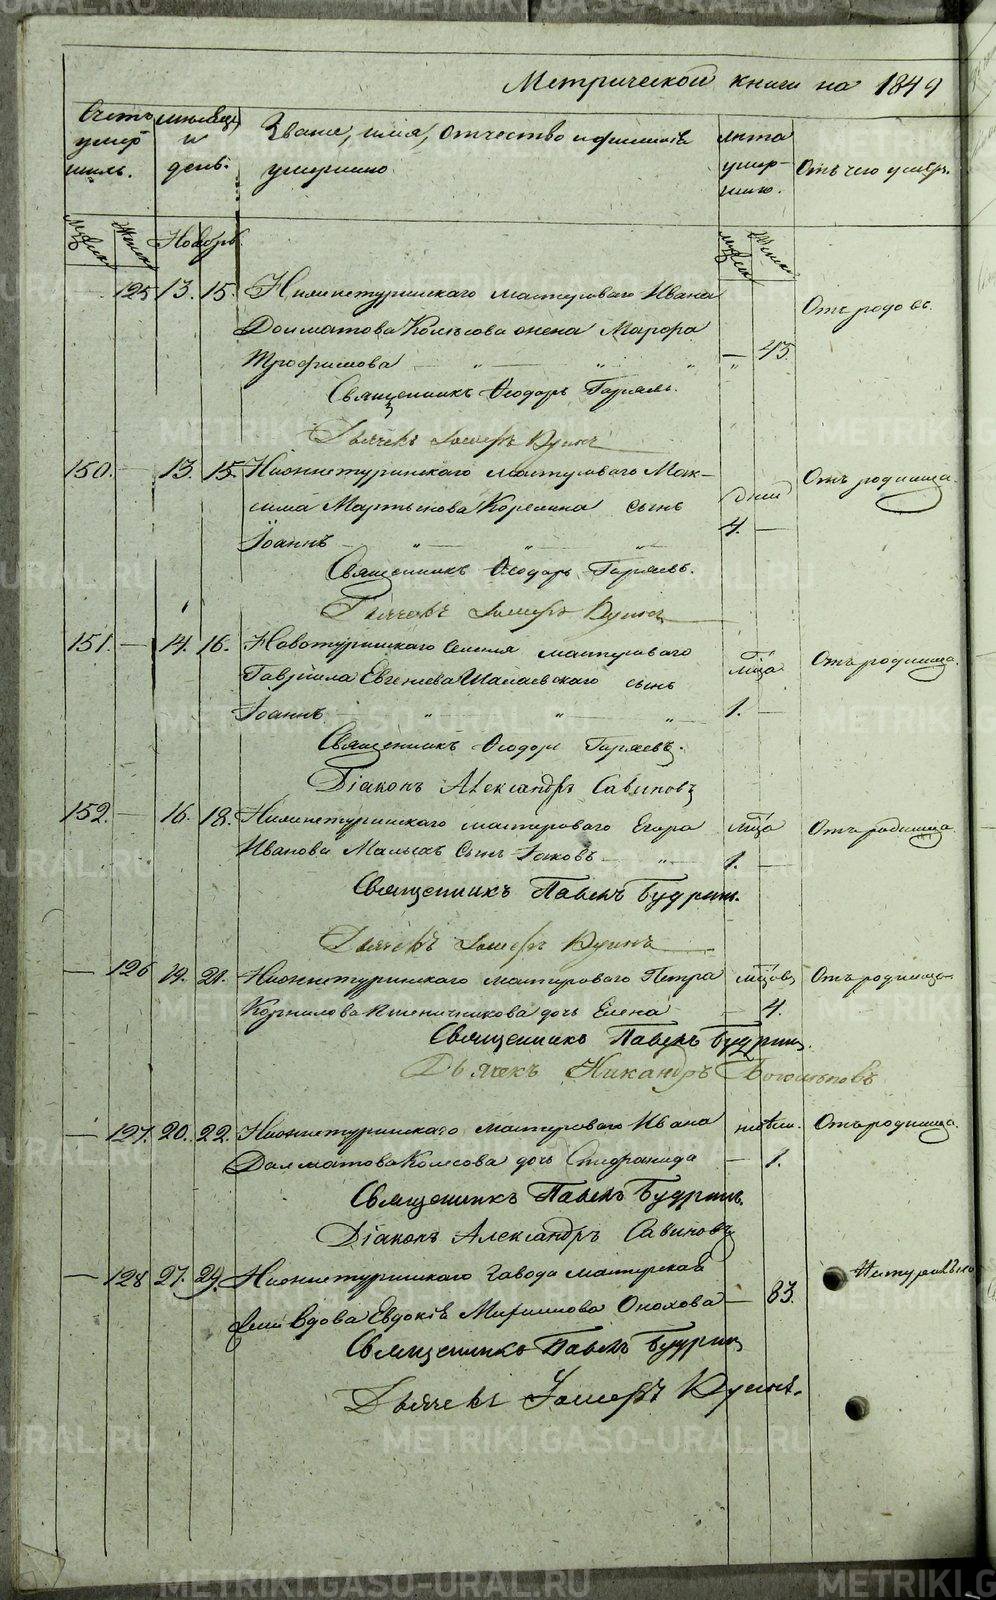 Метрической книги на 1849
Счетъ умершихъ.
Месяцъ и день.
Званіе, имя, отчество и фамилія умершаго.
Лѣта умершаго.
Отъ чего умеръ.
Мужеск. Женск. Ноябрь Мужеск. Женск.
125 13. 15. Нижнетуринскаго мастероваго Ивана
Долматова Колѣсова жена Марфа
Трофимова — „ — „ „ — 45. Отъ родовъ.
Священникъ Ѳеодоръ Гаряевъ.
Дьячекъ Іосифъ
150. — 13. 15. Нижнетуринскаго мастероваго Мак-
сима Мартынова Корелина сынъ
Іоаннъ — „ — „ — „ дней 4. — Отъ родимца.
Священникъ Ѳеодоръ Гаряевъ.
Дьячекъ Іосифъ
151. — 14. 16. Новотуринскаго селенія мастероваго
Гавріила Евгеніева Шалаевскаго сынъ
Іоаннъ — „ — „ — „ мца 1. — Отъ родимца.
Священникъ Ѳеодоръ Гаряевъ.
Діаконъ Александръ Савиновъ
152. — 16. 18. Нижнетуринскаго мастероваго Егора
Иванова Малыхъ сынъ Іаковъ — „ — мца 1. — Отъ родимца
Священникъ Павелъ Будринъ.
Дьячекъ Іосифъ
— 126 19. 21. Нижнетуринскаго мастероваго Петра
Корнилова Пшеничникова дочь Елена мцовъ — 4. Отъ родимца
Священникъ Павелъ Будринъ.
Дьячекъ Никандръ Богомоловъ
— 127. 20. 22. Нижнетуринскаго мастероваго Ивана
Далматова Колесова дочь Стефанида недели. — 1. Отъ родимца.
Священникъ Павелъ Будринъ.
Діаконъ Александръ Савиновъ
— 128 27. 29. Нижнетуринскаго Завода мастерская
вдова Евдокія — 83. Натурально
Священникъ Павелъ Будринъ
Дьячекъ Іосифъ
METRIKI.GASO-URAL.RU